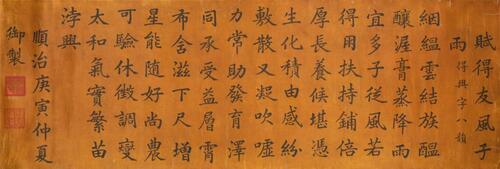 賦得友風子
雨 得興字八韻
絪緼雲結族醞
釀渥膏蒸降雨
宜多子從風若
得朋扶持鋪倍
厚長養候堪憑
生化積由感紛
敷散又凝吹噓
力常助發育澤
同承受益層霄
布含滋下尺增
星能隨好尚農
可驗休徵調燮
太和氣實繁苗
浡興
順治庚寅仲夏
御製